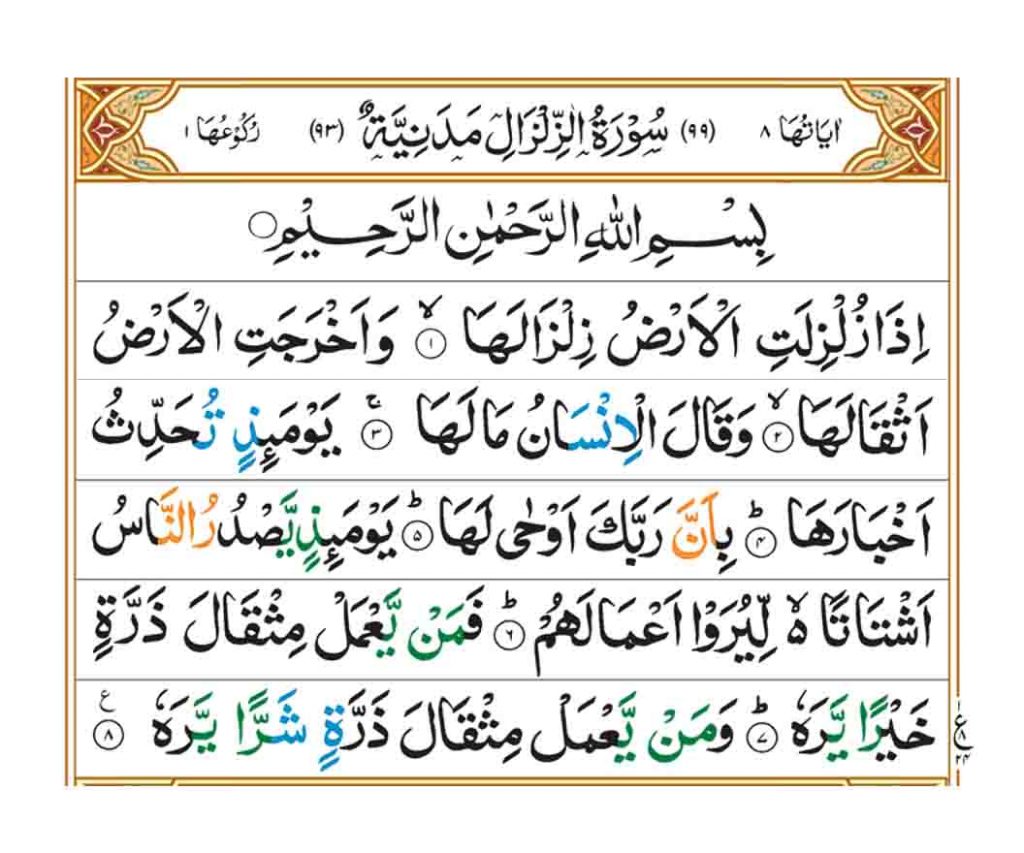 اٰيَاتُهَا ٨ (٩٩) سُوْرَةُ الزِّلْزَالِ مَدَنِيَّةٌ (٩٣) رُكُوْعُهَا ١
بِسْمِ اللّٰهِ الرَّحْمٰنِ الرَّحِيْمِ ۝
اِذَا زُلْزِلَتِ الْاَرْضُ زِلْزَالَهَا ۙ ١ وَاَخْرَجَتِ الْاَرْضُ
اَثْقَالَهَا ۙ ٢ وَقَالَ الْاِنْسَانُ مَا لَهَا ۚ ٣ يَوْمَئِذٍ تُحَدِّثُ
اَخْبَارَهَا ؕ ٤ بِاَنَّ رَبَّكَ اَوْحٰى لَهَا ؕ ٥ يَوْمَئِذٍ يَّصْدُرُ النَّاسُ
اَشْتَاتًا ۙ۬ لِّيُرَوْا اَعْمَالَهُمْ ؕ ٦ فَمَنْ يَّعْمَلْ مِثْقَالَ ذَرَّةٍ
خَيْرًا يَّرَهٗ ؕ ٧ وَمَنْ يَّعْمَلْ مِثْقَالَ ذَرَّةٍ شَرًّا يَّرَهٗ ع ٨
١ ع ٨ ٢٤